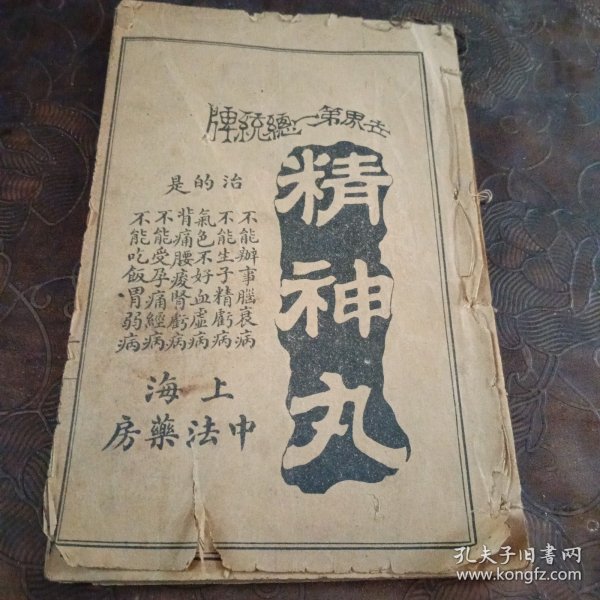 世界第一總統牌
精神丸
治的是
不能辦事腦衰病
不能生子精虧病
氣色不好血虛病
背痛腰痠腎虧病
不能受孕痛經病
不能吃飯胃弱病
上海
中法藥房
孔夫子旧书网
www.kongfz.com